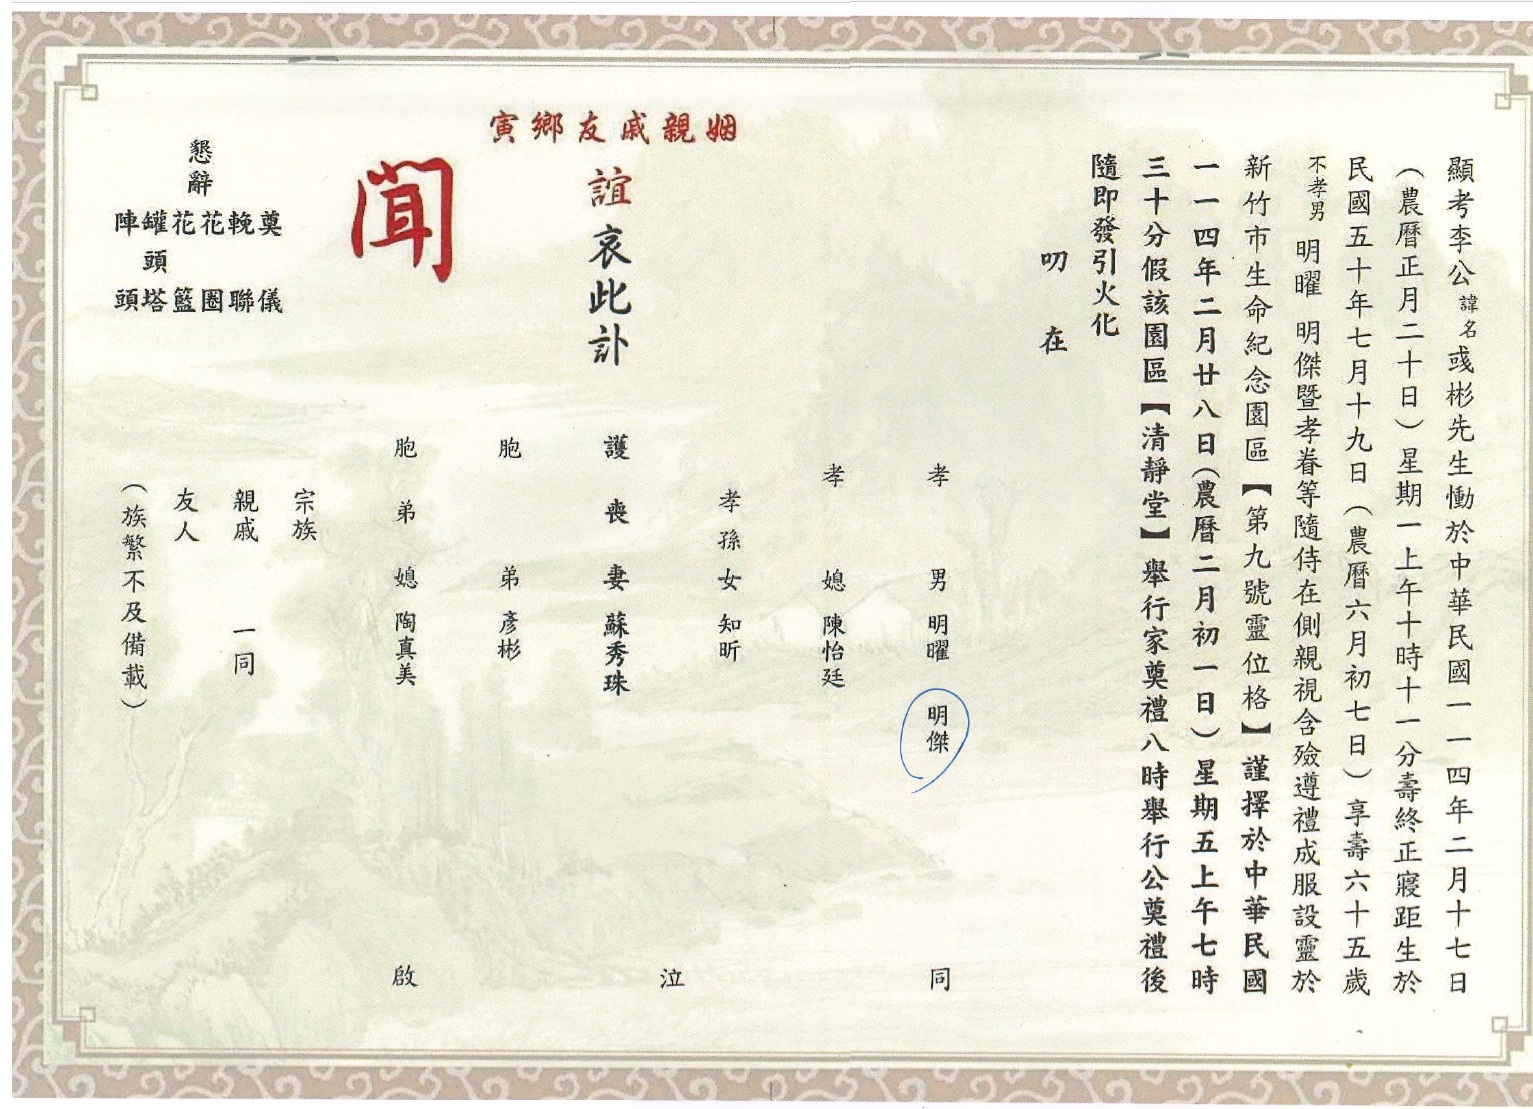 顯考李公諱名彧彬先生慟於中華民國一一四年二月十七日
（農曆正月二十日）星期一上午十時十一分壽終正寢距生於
民國五十年七月十九日（農曆六月初七日）享壽六十五歲
不孝男 明曜 明傑暨孝眷等隨侍在側親視含殮遵禮成服設靈於
新竹市生命紀念園區【第九號靈位格】謹擇於中華民國
一一四年二月廿八日（農曆二月初一日）星期五上午七時
三十分假該園區【清靜堂】舉行家奠禮八時舉行公奠禮後
隨即發引火化
叨在
姻親戚友鄉寅
誼哀此訃
聞
孝男 明曜 明傑
孝媳 陳怡廷
孝孫女 知昕
護喪妻 蘇秀珠
胞弟 彥彬
胞弟媳 陶真美
同泣啟
宗族
親戚 一同
友人
（族繁不及備載）
懇辭
奠儀
輓聯
花圈
花籃
罐頭塔
陣頭